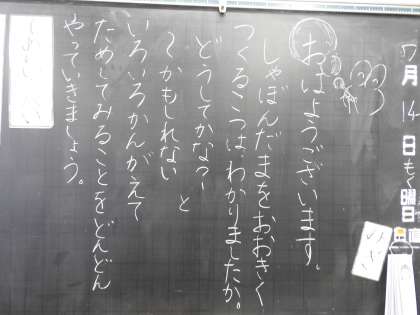 7月14日もく曜日
おはようございます。
しゃぼんだまをおおきく
つくるこつはわかりましたか。
どうしてかな?と
〜かもしれない
いろいろかんがえて
ためしてみることをどんどん
やっていきましょう。